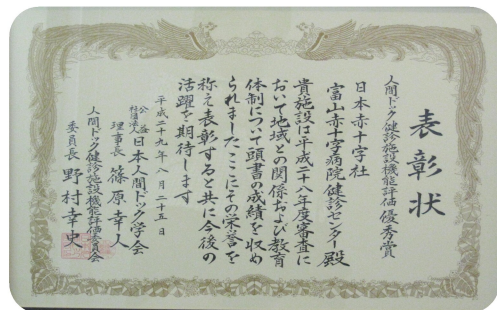 表彰状
人間ドック健診施設機能評価優秀賞
日本赤十字社
富山赤十字病院健診センター殿
貴施設は平成二十八年度審査に
おいて地域との関係および教育
体制について頭書の成績を収め
られました ここにその栄誉を
称え表彰すると共に今後の
活躍を期待します
平成二十九年八月二十五日
公益社団法人日本人間ドック学会
理事長 篠原幸人
人間ドック健診施設機能評価委員会
委員長 野村幸史